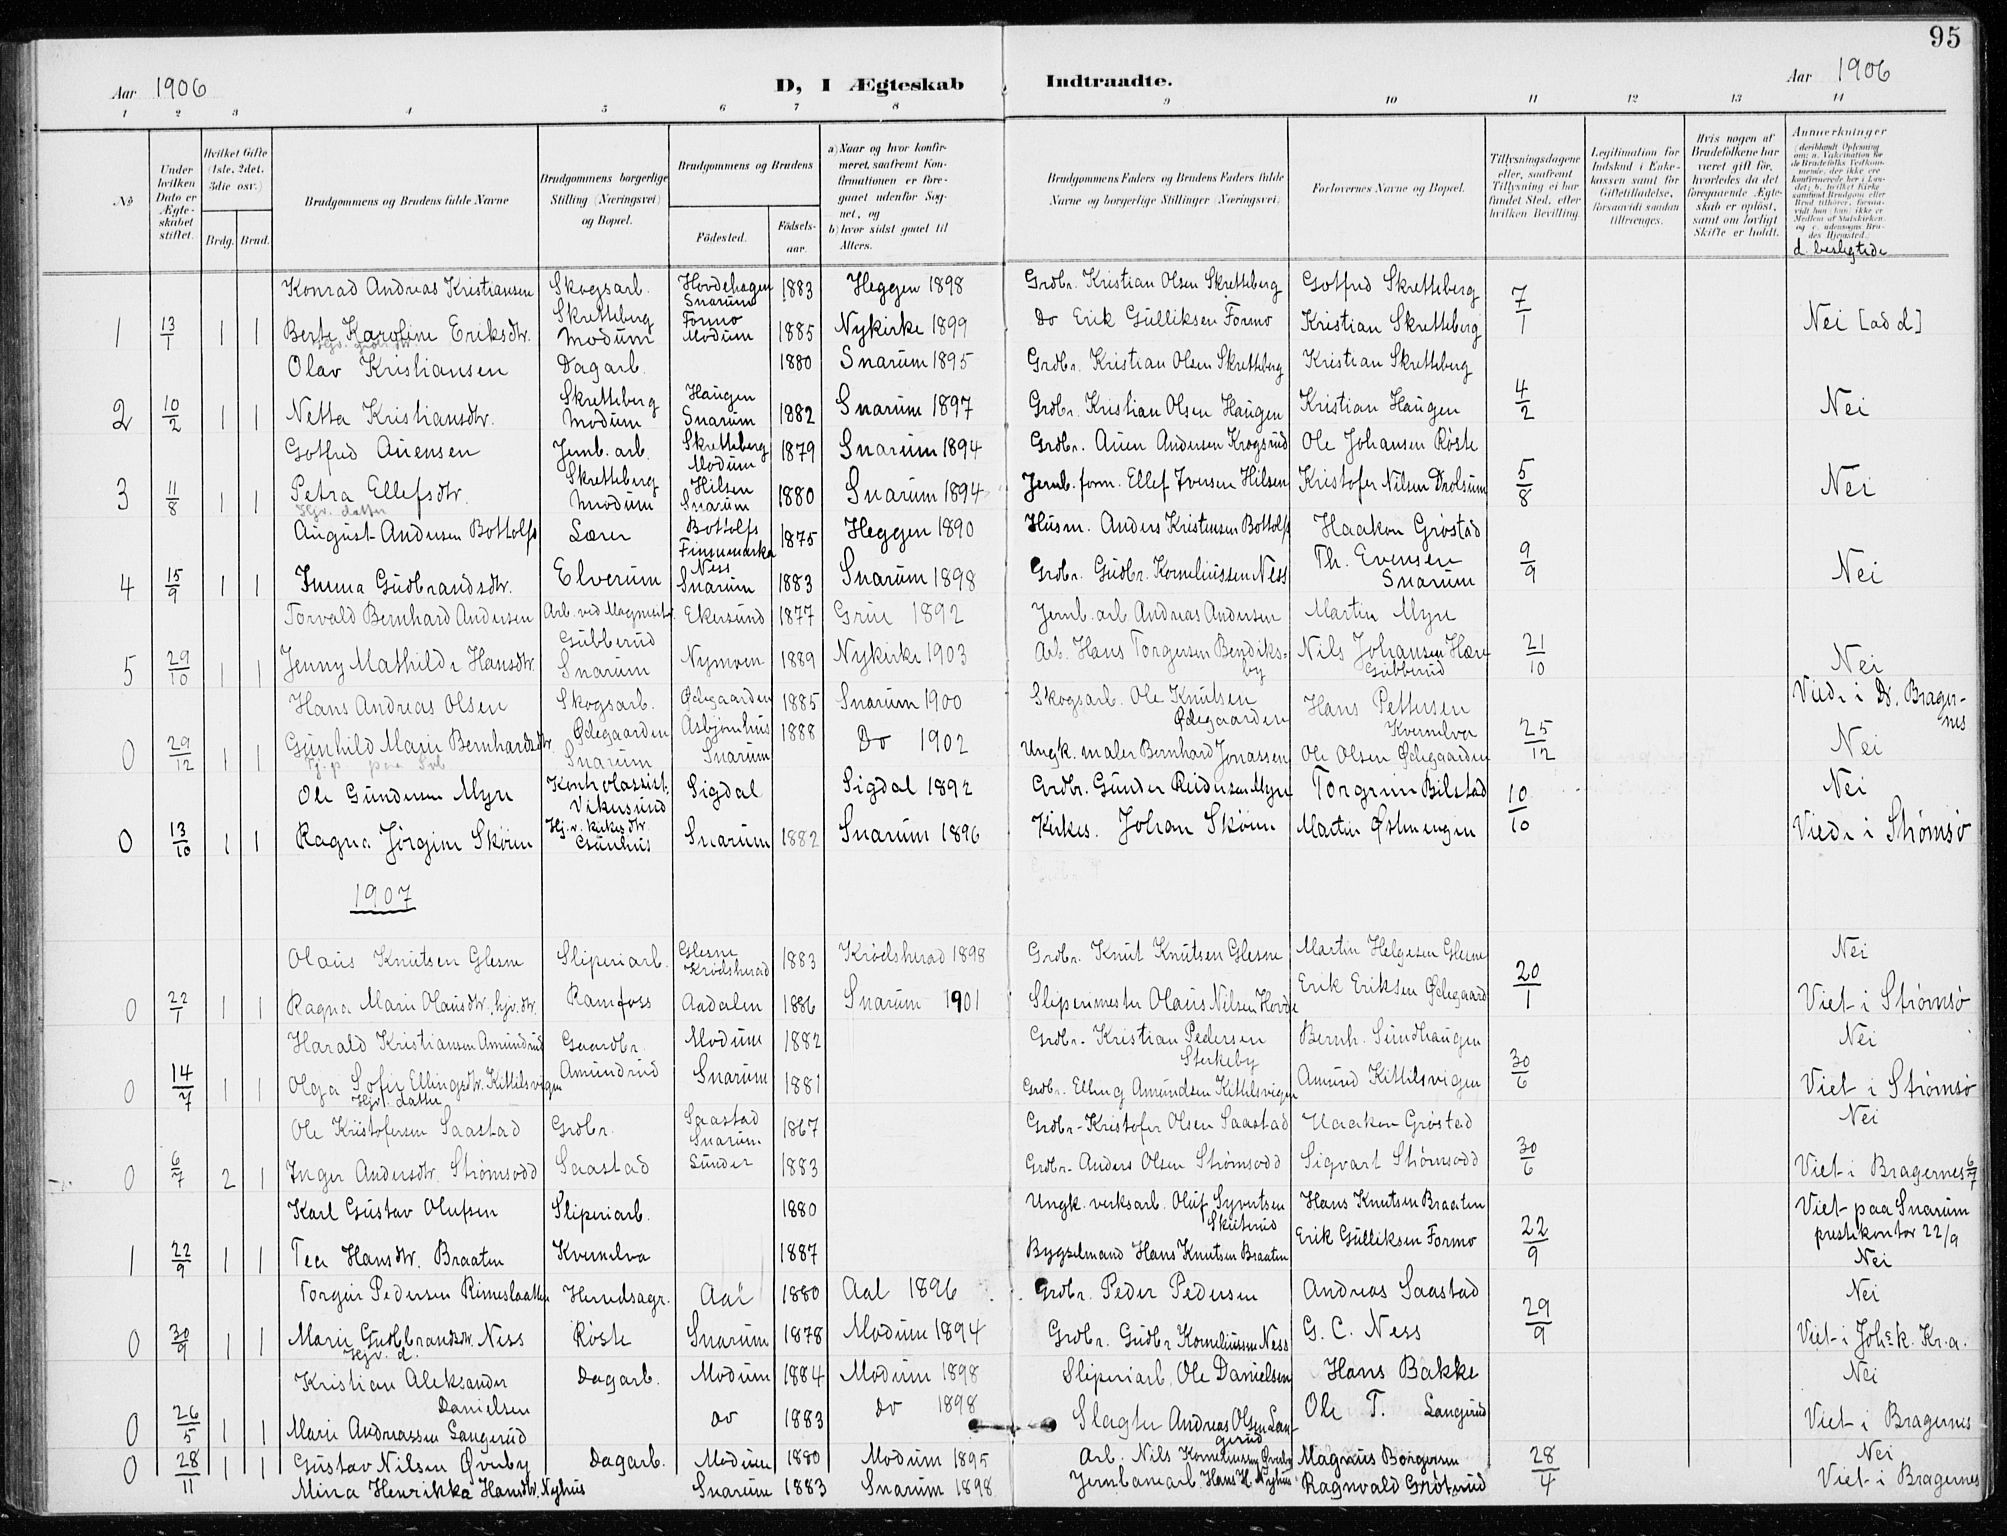 95
Aar 1906 D, I Ægteskab Indtraadte. Aar 1906
1 2 3 4 5 6 7 8 9 10 11 12 13 14
No
Under hvilken Dato er Ægteskabet stiftet.
Hvilket Gifte (1ste, 2det, 3die osv.)
Brdg. Brud.
Brudgommens og Brudens fulde Navne
Brudgommens borgerlige Stilling (Næringsvei) og Bopæl.
Brudgommens og Brudens
Fødested.
Fødselsaar.
a) Naar og hvor konfirmeret, saafremt Konfirmationen er foregaaet udenfor Sognet, og
b) hvor sidst gaaet til Alters.
Brudgommens Faders og Brudens Faders fulde Navne og borgerlige Stillinger (Næringsvei)
Forlovernes Navne og Bopæl.
Tillysningsdagene eller, saafremt Tillysning ei har fundet Sted, efter hvilken Bevilling.
Legitimation for Indskud i Enkekassen samt for Giftetilladelse, forsaavidt saadan tiltrænges.
Hvis nogen af Brudefolkene har været gift før, hvorledes da det foregaaende Ægteskab er opløst, samt om lovligt Skifte er holdt.
Anmerkninger
d. beslegtede
Konrad Andreas Kristiansen Skogsarb. Hovdehagen Snarum 1883 Heggen 1898 Grdbr. Kristian Olsen Skretteberg Gotfred Skretteberg 7/1
1 13/1 1 1 Berte Karoline Eriksdtr. Skretteberg Modum Formo Modum 1885 Nykirke 1899 Do Erik Gulliksen Formo Kristian Skretteberg Nei [ad d]
Olav Kristiansen Dagarb. 1880 Snarum 1895 Grdbr. Kristian Olsen Skretteberg Kristian Skretteberg 4/2
2 10/2 1 1 Netta Kristiansdtr. Skretteberg Modum Haugen Snarum 1882 Snarum 1897 Grdbr. Kristian Olsen Haugen Kristian Haugen Nei
Gotfred Auensen Jernb. arb. Skretteberg Modum 1879 Snarum 1894 Grdbr. Auen Andersen Krogsrud Ole Johansen Røste 5/8
3 11/8 1 1 Petra Ellefsdtr. Skretteberg Modum Hilsen Snarum 1880 Snarum 1894 Jernb. form. Ellef Iversen Hilsen Kristofer Nilsen Drolsum Nei
Hjv. datter
August Andersen Bottolfs Lærer Bottolfs Finnemarka 1875 Heggen 1890 Husm. Anders Kristensen Bottolfs Haakon Grøstad 9/9
4 15/9 1 1 Emma Gudbrandsdtr. Elverum Ness Snarum 1883 Snarum 1898 Grdbr. Gudbr. Korneliussen Ness Th. Evensen Snarum Nei
Torvald Bernhard Andersen Arb. ved Magnesit. Ekersund 1877 Grue 1892 Jernb. arb Andreas Andersen Martin Myre 21/10
5 29/10 1 1 Jenny Mathilde Hansdtr. Gubberud Snarum Nymoen 1889 Nykirke 1903 Arb. Hans Torgersen Bendiksby Nils Johansen Hære Gubberud Nei
Hans Andreas Olsen Skogsarb. Ødegaarden 1885 Snarum 1900 Skogsarb. Ole Knutsen Ødegaarden Hans Pettersen Kvernelva 25/12 Viede i Dr. Bragernes
0 29/12 1 1 Gunhild Marie Bernhardsdtr. Ødegaarden Snarum Asbjørnhus Snarum 1888 Do 1902 Ungk. maler Bernhard Jonassen Ole Olsen Ødegaarden Nei
Ole Gundersen Myre Kontrolassist. Vikersund Sigdal Sigdal 1892 Grdbr. Gunder Reidersen Myre Torgrim Bilstad 10/10 Nei
0 13/10 1 1 Ragna Jørgine Skøien Hj. v. kirkes. dtr. Snarum 1882 Snarum 1896 Kirkes. Johan Skøien Martin Østmengen Viede i Strømsø
1907
Olaus Knutsen Glesne Sliperiarb. Glesne Krødsherad 1883 Krødsherad 1898 Grdbr. Knut Knutsen Glesne Martin Helgesen Glesne 20/1 Nei
0 22/1 1 1 Ragna Marie Olausdtr. hjv. dtr. Ramfoss Aadalen 1886 Snarum 1901 Sliperimester Olaus Nilsen Hovde Erik Eriksen Ødegaard Viet i Strømsø
Harald Kristiansen Amundrud Gaardbr. Modum 1882 Grdbr. Kristian Pedersen Sterkeby Bernh. Sundhaugen 30/6 Nei
0 14/7 1 1 Olga Sofie Ellingsdtr. Kittilsvigen Amundrud Snarum 1881 Grdbr. Elling Amundsen Kittilsvigen Amund Kittilsvigen Viet i Strømsø
Hjv. datter
Ole Kristofersen Saastad Grdbr. Saastad Snarum 1867 Grdbr. Kristofer Olsen Saastad Haakon Grøstad 30/6 Nei
0 6/7 2 1 Inger Andersdtr. Strømsodd Saastad Sunder 1883 Grdbr. Anders Olsen Strømsodd Sigvart Strømsodd Viet i Bragernes 6/7
Karl Gustav Olufsen Sliperiarb. 1880 Ungk. verksarb. Oluf Syvertsen Skuterud Hans Knutsen Braaten 22/9 Viet paa Snarum prestekontor 22/9
1 22/9 1 1 Tea Hansdtr. Braaten Kvernelva 1887 Bygselmand Hans Knutsen Braaten Erik Gulliksen Formo Nei
Torgeir Pedersen Rimeslaatten Herredsagr. Aal 1880 Aal 1896 Grdbr. Peder Pedersen Andreas Saastad 29/9 Nei
0 30/9 1 1 Marie Gudbrandsdtr. Ness Røste Snarum 1878 Modum 1894 Grdbr. Gudbr Korneliussen Ness G. C. Ness Viet i Johs k. Kr.a.
Hjv. d.
Kristian Aleksander Danielsen Dagarb. Modum 1884 Modum 1898 Sliperiarb. Ole Danielsen Hans Bakke Nei
0 26/5 1 1 Marie Andreassen Langerud do 1883 do 1898 Slagter Andreas Olsen Langerud Ole T. Langerud Viet i Bragernes
0 28/11 1 1 Gustav Nilsen Øverby Dagarb. Modum 1880 Modum 1895 Arb. Nils Korneliussen Øverby Magnus Borgersen 28/4 Nei
Mina Henrikka Hansdtr. Nyhus Snarum 1883 Snarum 1898 Jernbanearb. Hans H. Nyhus Ragnvald Grøtrud Viet i Bragernes